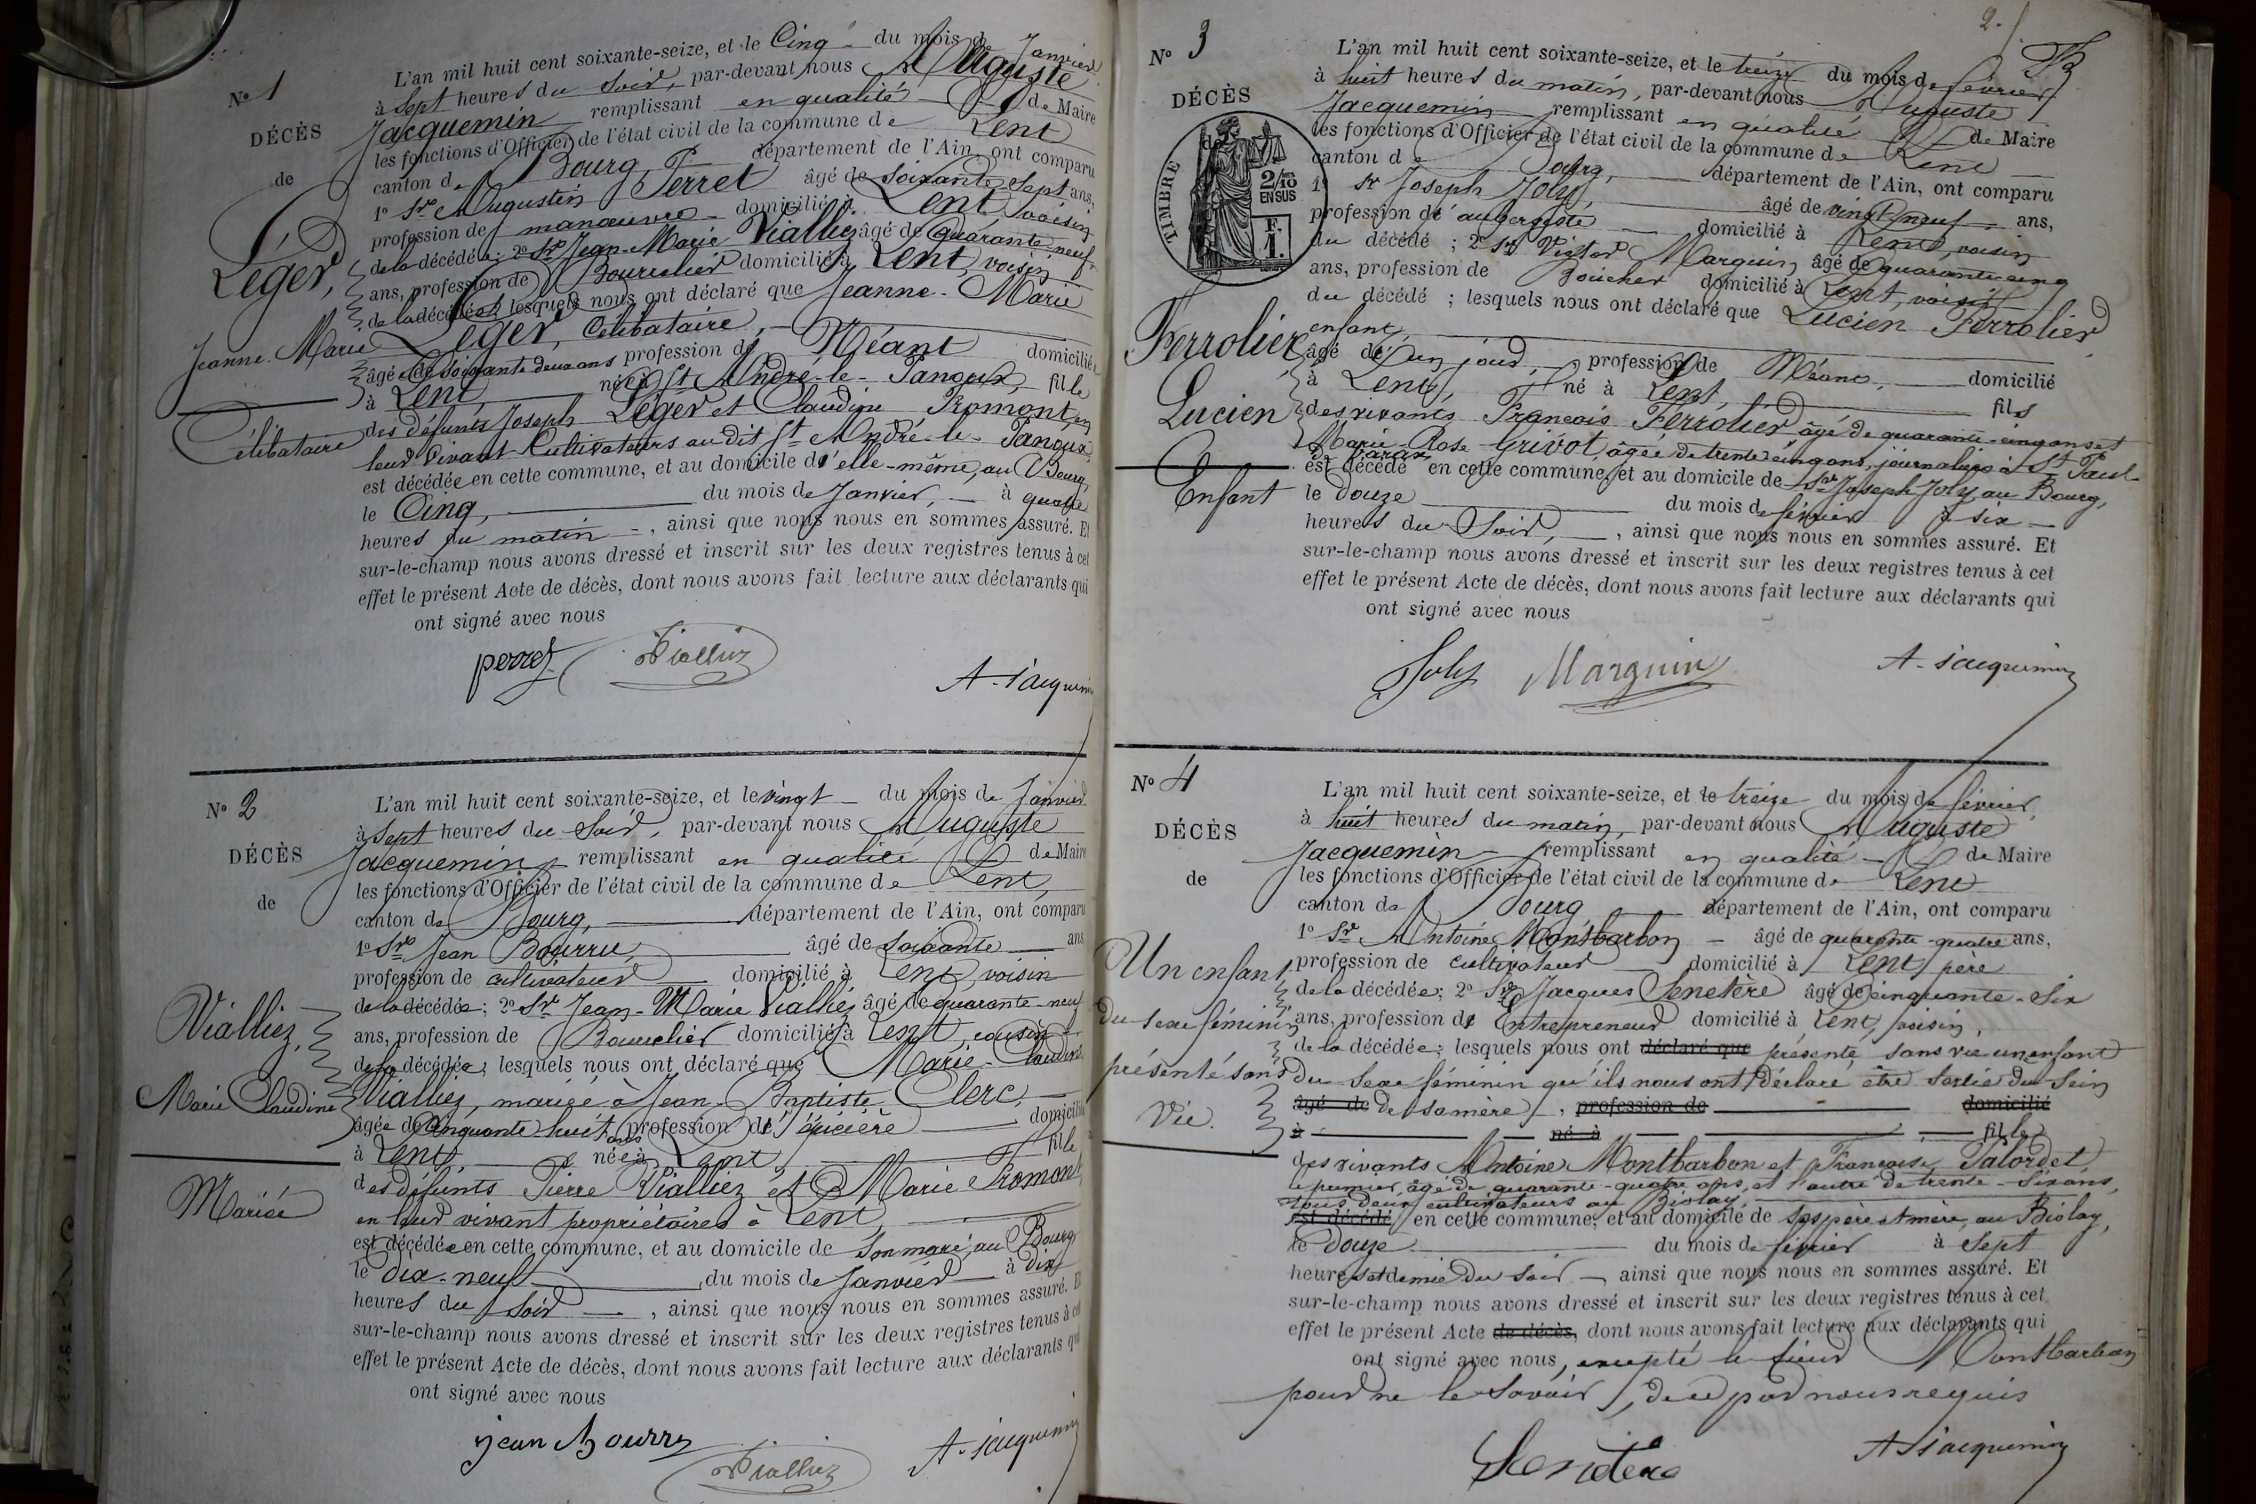 N° 1
DÉCÈS
de
Léger,
Jeanne-Marie
Célibataire
L'an mil huit cent soixante-seize, et le Cinq du mois de Janvier
à Sept heures du Soir, par-devant nous Auguste
Jacquemin remplissant en qualité de Maire
les fonctions d'Officier de l'état civil de la commune de Lent
canton de Bourg, département de l'Ain, ont comparu
1° Sr Augustin Perret âgé de soixante-sept ans,
profession de manœuvre domicilié à Lent, voisin
de la décédée; 2° Sr Jean-Marie Vialliez âgé de quarante-neuf
ans, profession de Bourrelier domicilié à Lent, voisin
de la décédée; lesquels nous ont déclaré que Jeanne-Marie
Léger, Célibataire,
âgée de soixante deux ans profession de Néant domiciliée
à Lent née à St André-le-Panoux, fille
des défunts Joseph Léger et Claudine Fromont, en
leur vivant Cultivateurs audit St André-le-Panoux,
est décédée en cette commune, et au domicile d'elle-même, au Bourg,
le Cinq, du mois de Janvier, à quatre
heures du matin, ainsi que nous nous en sommes assuré. Et
sur-le-champ nous avons dressé et inscrit sur les deux registres tenus à cet
effet le présent Acte de décès, dont nous avons fait lecture aux déclarants qui
ont signé avec nous
perret Vialliez
A. Jacquemin
N° 2
DÉCÈS
de
Vialliez,
Marie Claudine
Mariée
L'an mil huit cent soixante-seize, et le vingt du mois de Janvier
à Sept heures du Soir, par-devant nous Auguste
Jacquemin remplissant en qualité de Maire
les fonctions d'Officier de l'état civil de la commune de Lent,
canton de Bourg, département de l'Ain, ont comparu
1° Sr Jean Bourru, âgé de soixante ans
profession de cultivateur domicilié à Lent, voisin
de la décédée; 2° Sr Jean-Marie Vialliez âgé de quarante-neuf
ans, profession de Bourrelier domicilié à Lent, cousin
de la décédée; lesquels nous ont déclaré que Marie-Claudine
Vialliez, mariée à Jean-Baptiste Clerc,
âgée de Cinquante-huit ans profession d'épicière domiciliée
à Lent, née à Lent, fille
des défunts Pierre Vialliez et Marie Fromont
en leur vivant propriétaires à Lent,
est décédée en cette commune, et au domicile de son mari, au Bourg
le dix-neuf du mois de Janvier à dix
heures du soir, ainsi que nous nous en sommes assuré. Et
sur-le-champ nous avons dressé et inscrit sur les deux registres tenus à cet
effet le présent Acte de décès, dont nous avons fait lecture aux déclarants qui
ont signé avec nous
jean Bourru
Vialliez A. Jacquemin
2.
N° 3
DÉCÈS
TIMBRE
2/10 EN SUS
F. 1.
Ferrolier
Lucien
Enfant
L'an mil huit cent soixante-seize, et le treize du mois de février
à huit heures du matin, par-devant nous Auguste
Jacquemin remplissant en qualité de Maire
les fonctions d'Officier de l'état civil de la commune de Lent
canton de Bourg, département de l'Ain, ont comparu
1° Sr Joseph Joly, âgé de vingt neuf ans,
profession d'aubergiste domicilié à Lent, voisin
du décédé; 2° Sr Victor Marguin, âgé de quarante cinq
ans, profession de Boucher domicilié à Lent, voisin
du décédé; lesquels nous ont déclaré que Lucien Ferrolier
enfant,
âgé d'un jour, profession de Néant, domicilié
à Lent, né à Lent, fils
des vivants François Ferrolier âgé de quarante-cinq ans et
Marie-Rose Grivot, âgée de trente cinq ans, journaliers à St Paul
de Varax
est décédé en cette commune, et au domicile de Sr Joseph Joly au Bourg,
le douze du mois de février à six
heures du Soir, ainsi que nous nous en sommes assuré. Et
sur-le-champ nous avons dressé et inscrit sur les deux registres tenus à cet
effet le présent Acte de décès, dont nous avons fait lecture aux déclarants qui
ont signé avec nous
Joly Marguin A. Jacquemin
N° 4
DÉCÈS
de
Un enfant
du sexe féminin
présenté sans
Vie.
L'an mil huit cent soixante-seize, et le treize du mois de février,
à huit heures du matin, par-devant nous Auguste
Jacquemin remplissant en qualité de Maire
les fonctions d'Officier de l'état civil de la commune de Lent
canton de Bourg département de l'Ain, ont comparu
1° Sr Antoine Montbarbon âgé de quarante-quatre ans,
profession de cultivateur domicilié à Lent, père
de la décédée; 2° Sr Jacques Senetère âgé de cinquante-six
ans, profession d'Entrepreneur domicilié à Lent, voisin,
de la décédée; lesquels nous ont déclaré que présenté sans vie un enfant
du sexe féminin qu'ils nous ont déclaré être sortie du sein
âgé de de sa mère, profession de domicilié
à né à fille
des vivants Antoine Montbarbon et Françoise Palordet
le premier âgé de quarante-quatre ans, et l'autre de trente-six ans,
tous deux cultivateurs au Biolay,
est décédé en cette commune, et au domicile de ses père et mère, au Biolay,
le Douze du mois de février à sept
heures et demie du soir ainsi que nous nous en sommes assuré. Et
sur-le-champ nous avons dressé et inscrit sur les deux registres tenus à cet
effet le présent Acte de décès, dont nous avons fait lecture aux déclarants qui
ont signé avec nous, excepté le sieur Montbarbon
pour ne le savoir, de ce par nous requis
Senetère A. Jacquemin